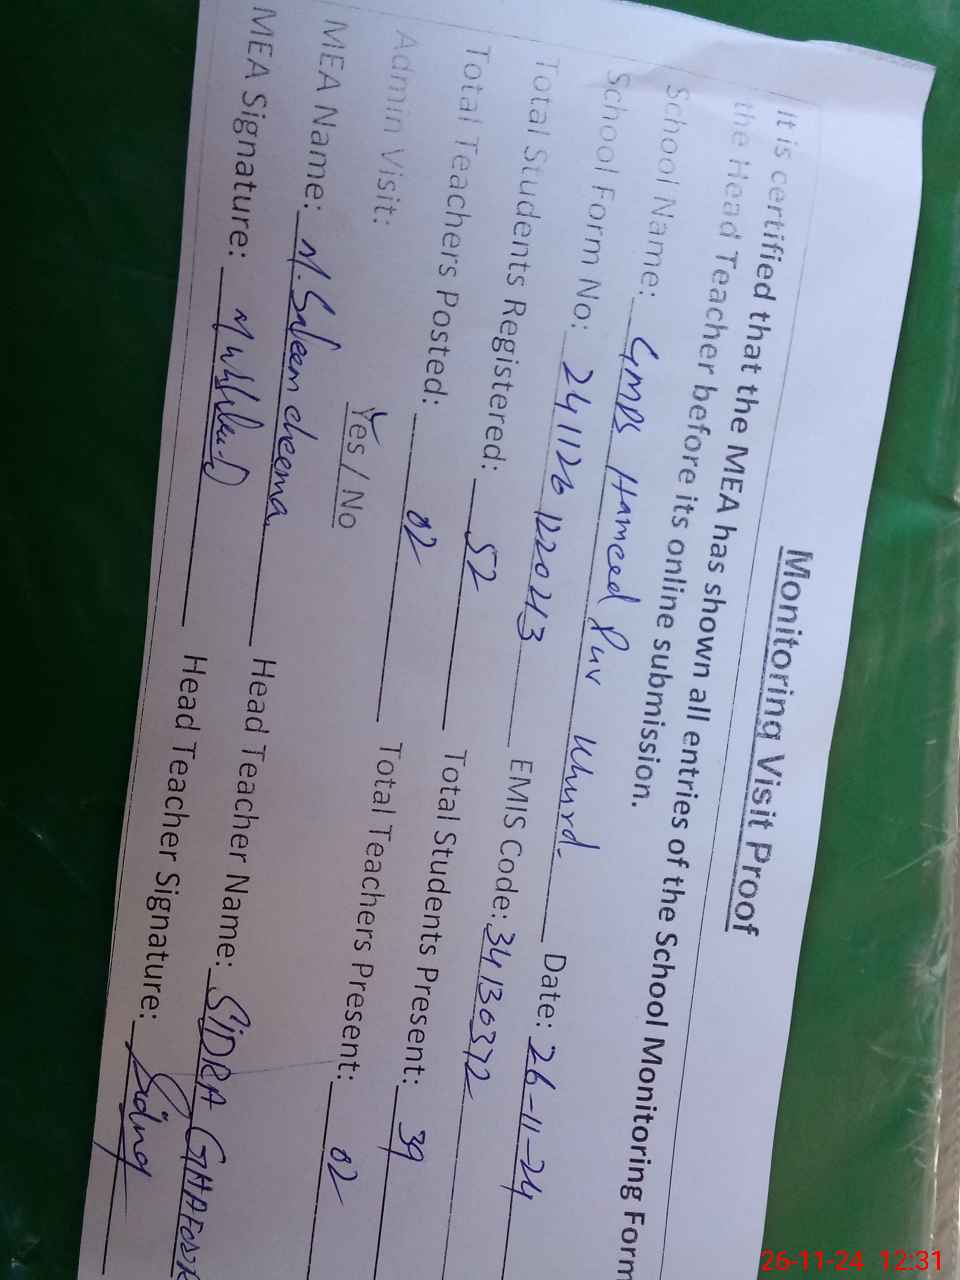 Monitoring Visit Proof
It is certified that the MEA has shown all entries of the School Monitoring Form
the Head Teacher before its online submission.
School Name: GMPS Hameed Pur Khurd. Date: 26-11-24
School Form No: 241126122043 EMIS Code: 34130372
Total Students Registered: 52 Total Students Present: 39
Total Teachers Posted: 02 Total Teachers Present: 02
Admin Visit: Yes / No
MEA Name: M. Saleem cheema Head Teacher Name: SIDRA GHAFOOR
MEA Signature: Head Teacher Signature: Sidra
26-11-24 12:31